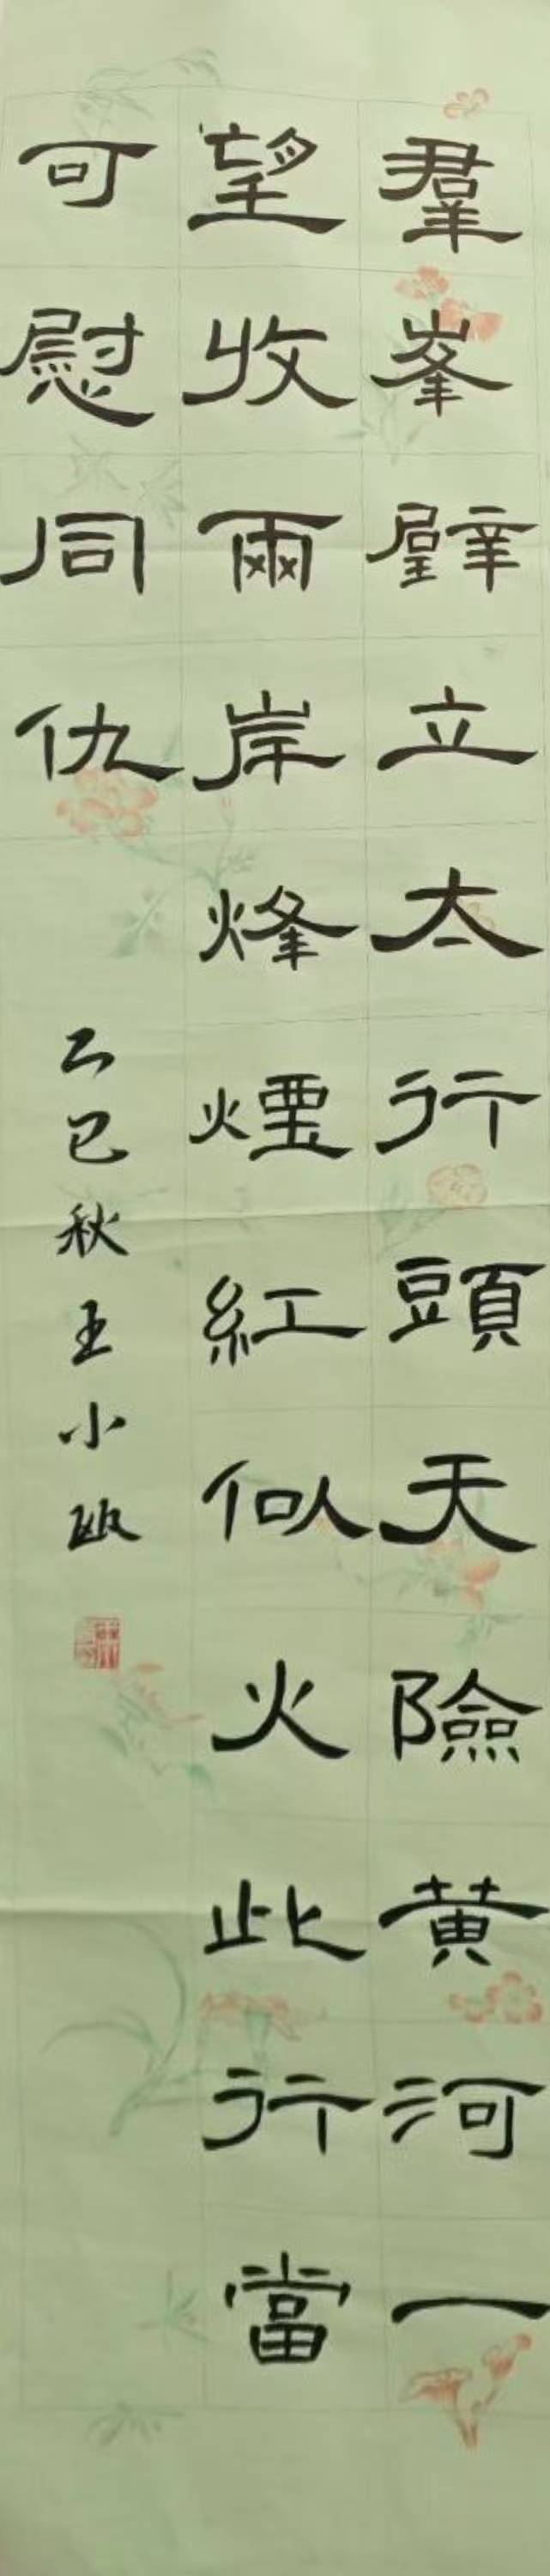 羣峯壁立太行頭天險黃河一
望收兩岸烽煙紅似火此行當
可慰同仇
乙巳秋王小